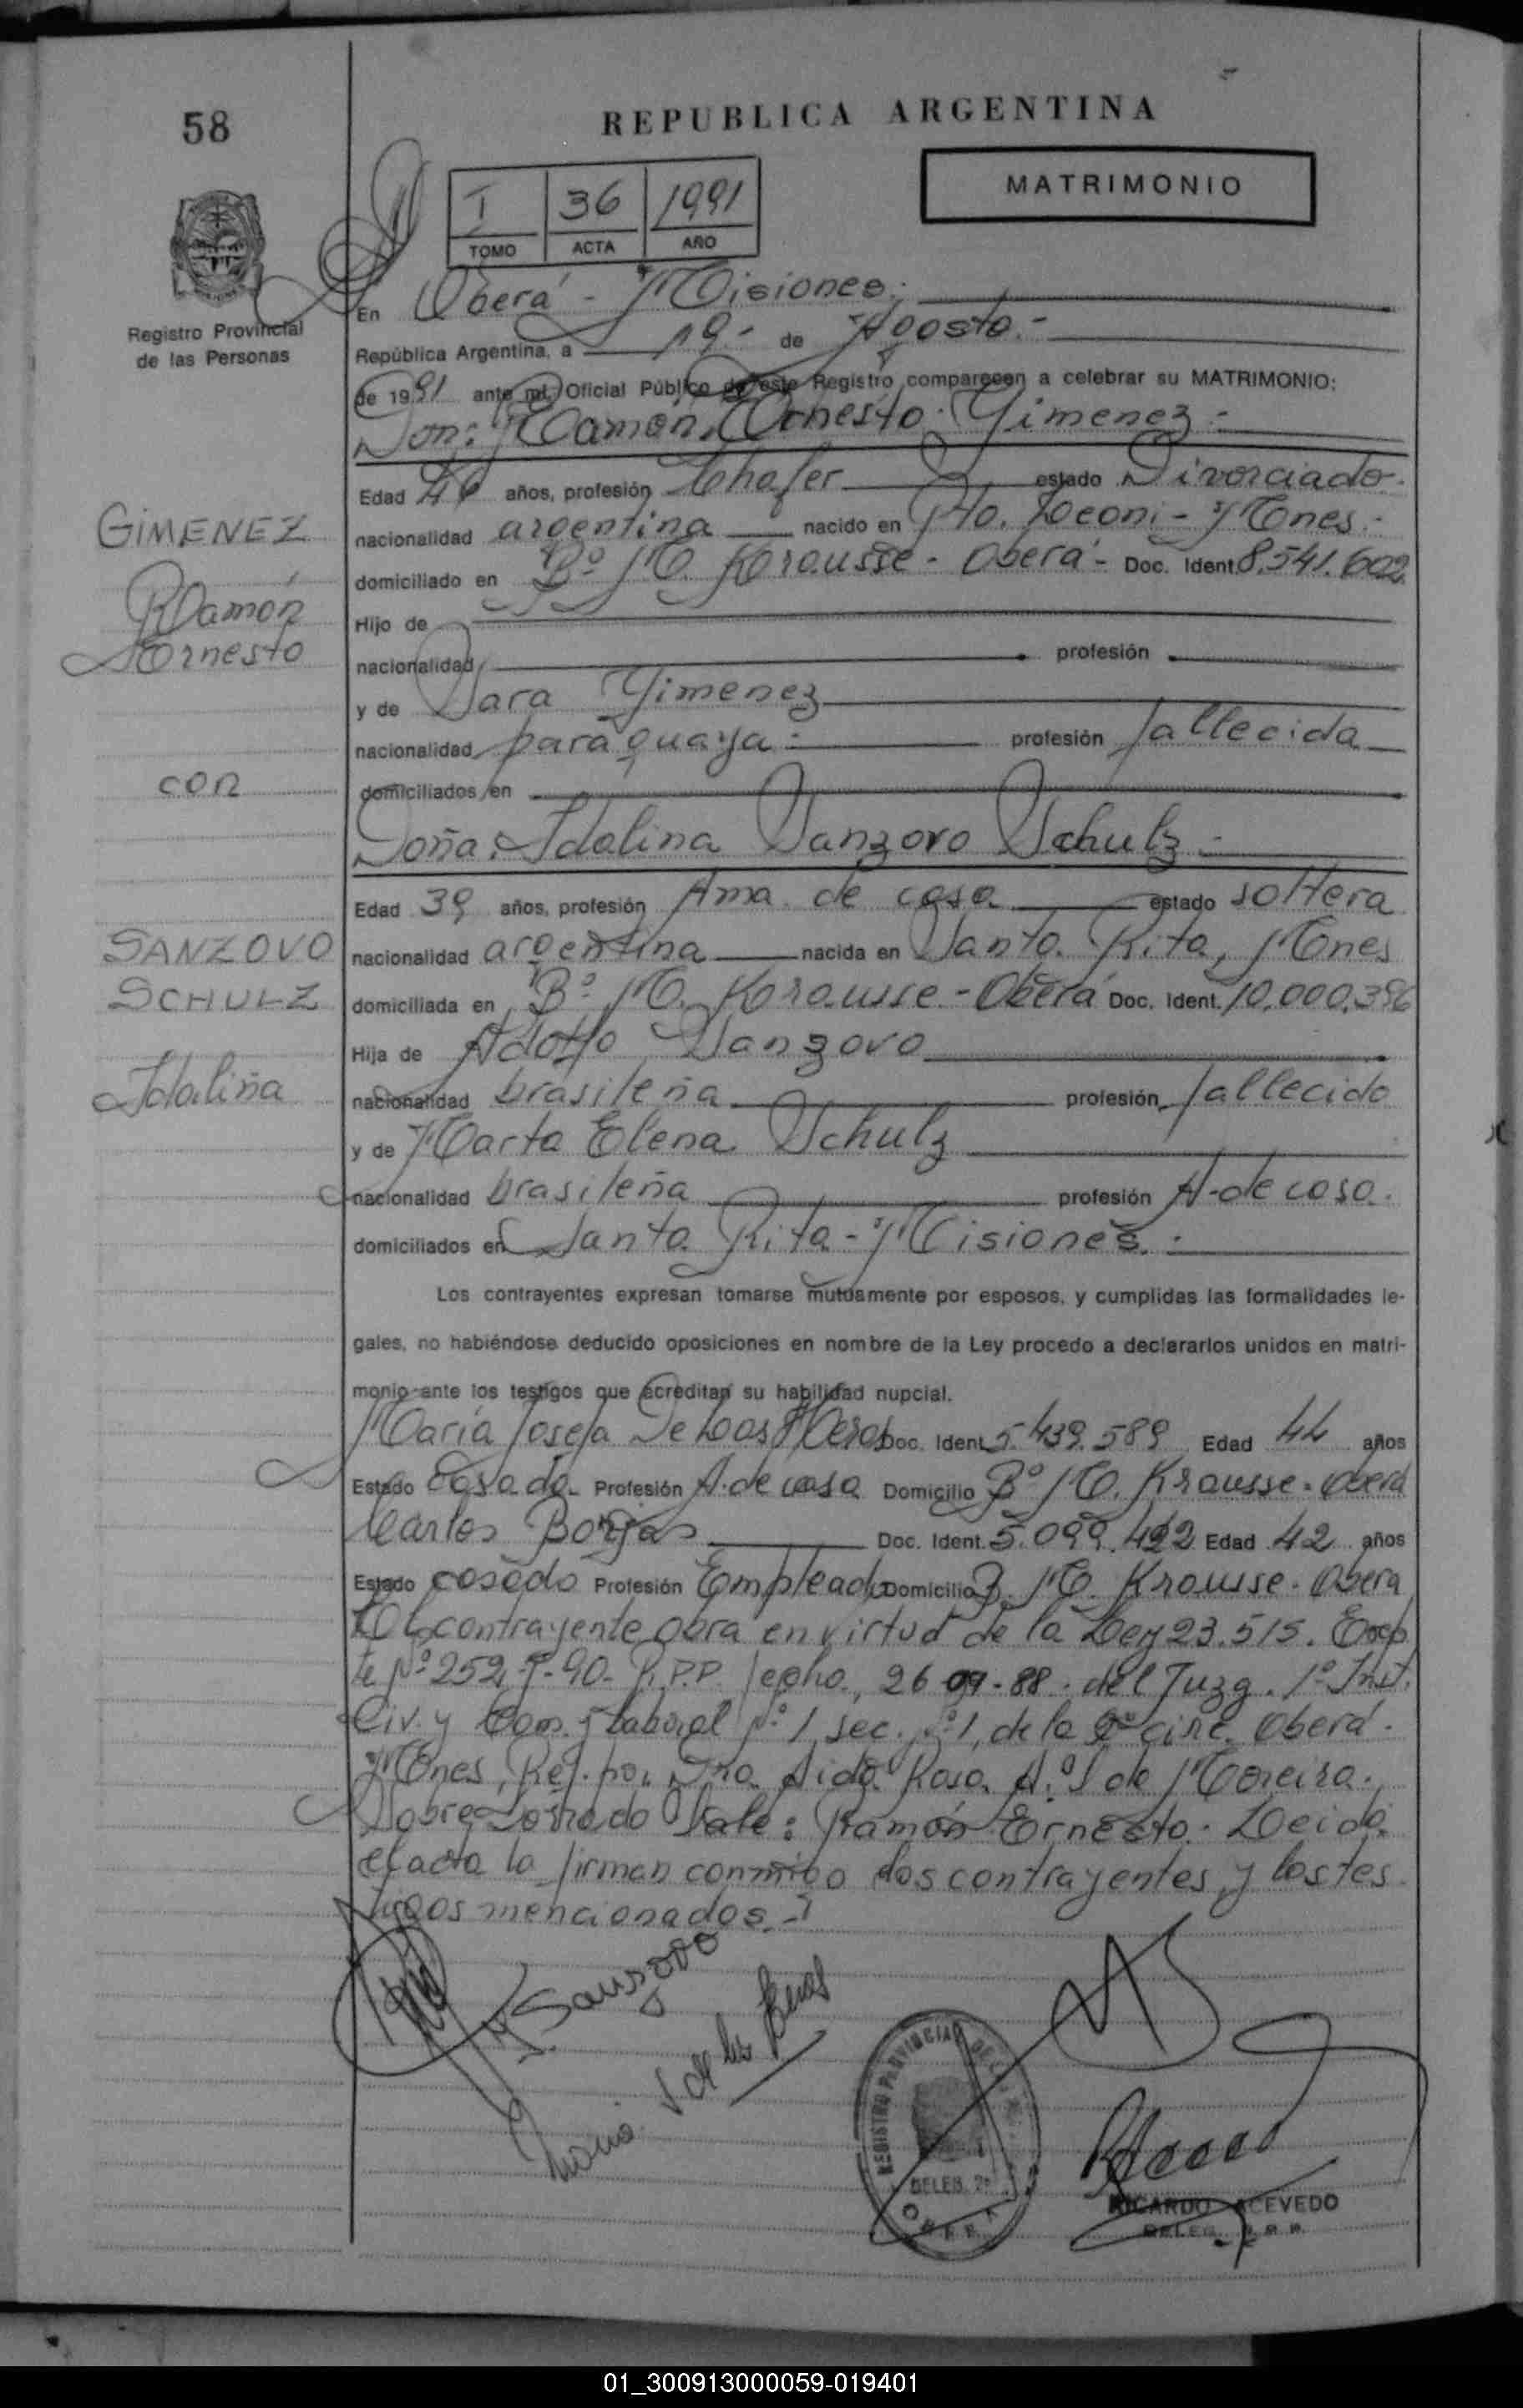 58
REPUBLICA ARGENTINA
MATRIMONIO
I 36 1991
TOMO ACTA AÑO
Registro Provincial
de las Personas
En Oberá - Misiones.-
República Argentina, a 19.- de Agosto.-
de 1991 ante mí, Oficial Público de este Registro comparecen a celebrar su MATRIMONIO:
Don: Ramón Ernesto Gimenez.-
Edad años, profesión Chofer estado Divorciado.
nacionalidad argentina nacido en Pto. Leoni - Mnes.-
domiciliado en Bº M. Krausse - Oberá - Doc. Ident. 8.541.602
Hijo de
nacionalidad profesión
y de Sara Gimenez
nacionalidad paraguaya.- profesión fallecida
domiciliados en
Doña: Idalina Sanzovo Schulz.-
Edad 39 años, profesión Ama de casa estado soltera
nacionalidad argentina nacida en Santa Rita, Mnes
domiciliada en Bº M. Krausse - Oberá Doc. Ident. 10.000.396
Hija de Adolfo Sanzovo
nacionalidad brasileña profesión fallecido
y de Marta Elena Schulz
nacionalidad brasileña profesión A. de casa.
domiciliados en Santa Rita - Misiones.-
GIMENEZ
Ramón
Ernesto
con
SANZOVO
SCHULZ
Idalina
Los contrayentes expresan tomarse mutuamente por esposos, y cumplidas las formalidades le-
gales, no habiéndose deducido oposiciones en nombre de la Ley procedo a declararlos unidos en matri-
monio ante los testigos que acreditan su habilidad nupcial.
María Josefa De Loos Doc. Ident. 5.439.589 Edad 44 años
Estado Casada Profesión A. de casa Domicilio Bº M. Krausse - Oberá
Carlos Borjas Doc. Ident. 5.099.492 Edad 42 años
Estado casado Profesión Empleado Domicilio B. M. Krausse - Oberá
El contrayente obra en virtud de la Ley 23.515. Exp
te Nº 252 -90- R.P.P. fecha, 26 09-88 - del Juzg. 1º Inst.
Civ. y Com. y Laboral Nº 1, sec. Nº 1, de la 2º circ. Oberá.
Mnes, Ref. por Dra. Aida Rosa de Moreira.
Sobre borrado Vale: Ramón Ernesto. Leida
el acta la firman conmigo los contrayentes y los tes
tigos mencionados.-
I. Sanzovo
Maria J de los
REGISTRO PROVINCIAL DE
DELEG. 2ª
OBERA
RICARDO ACEVEDO
DELEG. R.P.P.
01_300913000059-019401